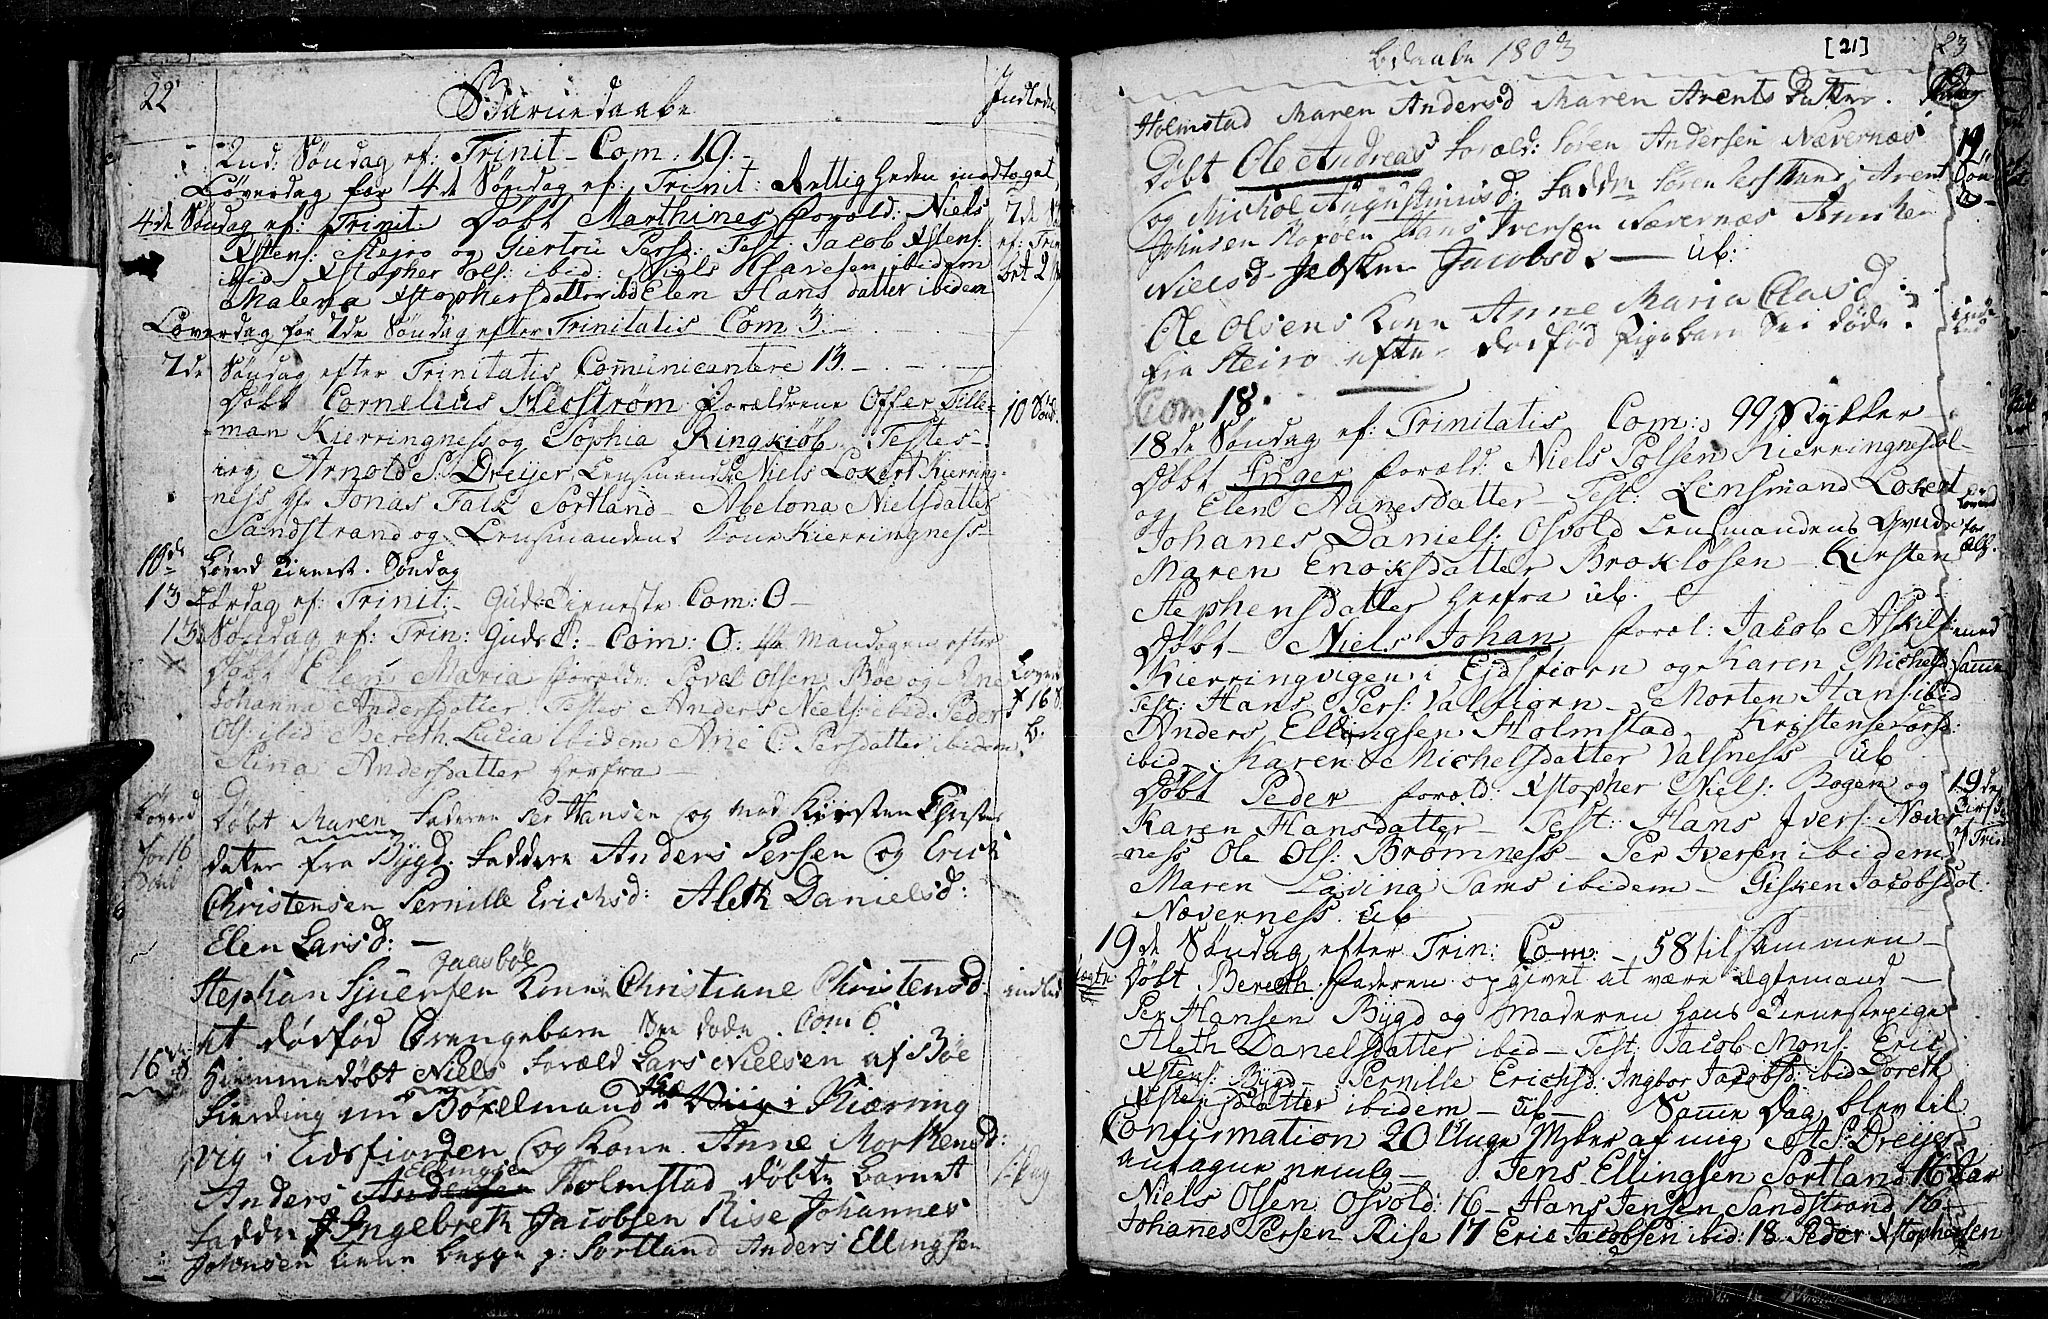 22
Barnedaabe
Indledn
2nd: Søndag ef: Trinit - Com. 19 -
Løverdag for 4de Søndag ef: Trinit: Rettigheden modtoget
4de Søndag ef: Trinit. Døbt Marthines foræld: Niels
Xstens: Steiro og Giertru Persd: Test: Jacob Xstens:
ibid Xstopher Ols: ibid: Niels ibidem
Malena Xstophersdatter ibd Elen Hans datter ibidem
7de
ef: Trin
Løverdag for 7de Søndag efter Trinitatis Com 3. -
7de Søndag efter Trinitatis Comunicantere 13. - . - . -
Døbt Cornelius Hegstrøm Forældrene Offer Tille-
=man Kierringness og Sophia Ringkiøb. Testes -
ieg Arnold S: Dreijer, Lensmand Niels Lokert Kierring-
ness Hr Jonas Falk Sortland - Abelona Nielsdatter
Sandstrand og Lensmandens Kone Kierringness -
10 Sønd.
10de Søndag
13 Lørdag ef: Trinit: - Guds Tieneste Com: 0 -
13 Søndag ef: Trin: Guds T: - Com: 0: Mandagen efter
Døbt Elen Maria foræld: Povel Olsen Bøe og Ane
Johanna Andersdatter Testes Anders Niels: ibid Peder
Ols: ibid Bereth Lucia ibidem Ane C: Persdatter ibidem
Stina Andersdatter herfra -
Løverd
f 16 S.
Løverd
for 16
Sønd
Døbt Maren Faderen Per Hansen og mod Kirsten Christens
datter fra Bygd. Faddere Anders Persen og Erick
Christensen Pernille Ericksd: Aleth Danielsd:
Elen Larsd: -
Gaasbøl
Stephan Sjuersen Konne Christiane Christensd.
et dødfød Drengebarn See døde. Com 6
indled
16de S
Hiemmedøbt Niels Foræld Lars Nielsen af Bøe
Fierding en Bøxelmand i Kiærring
vig i Eidsfiorden og Kone Anne Morthensd:
Ellingsen
Anders Andersen Holmstad døbte Barnet
Faddre Ingebreth Jacobsen Rise Johannes
Johnsen tiene begge p: Sortland Anders Ellingsen
Bdaabe 1803
[21]
23
Holmstad Maren Andersd Maren Arents Datter.
Døbt Ole Andreas Foræld: Søren Andersen Nævernæs
og Michol Augustinusd: Faddre Søren Arent
Johnsen Hans Iversen Nævernæs Anniken
Nielsd - Jacobsd. - ub:
19
Søn
Ole Olsens Kone Anne Maria Clasd:
fra Steiro efter Dødfød Pigebarn See døde.
inde
led
Com 18.
18de Søndag ef: Trinitatis Com: 99 Stykker
Døbt Inger foræld: Niels Polsen Kierringness
og Elen Hanesdatter - Test: Lensmand Lokert
Johanes Daniels: Osvold Lensmandens
Maren Enoksdatter Brokløsen - Kirsten
Stephensdatter herfra ub.
Løverd
for
Døbt - Niels Johan - foræl: Jacob Askils:
Kierringvigen i Eidsfiorn og Karen Michelsd
Test: Hans Pers: Valfiorn - Morten Hans: ibid
Anders Ellingsen Holmstad -
ibid - Karen Michelsdatter Valsness ub
Døbt Peder foræld: Xstopher Niels: Bogen og
Karen Hansdatter - Test: Hans Ivers: Næver
=ness Ole Ols: Brømness - Per Iversen ibidem
Maren Lavina Sams ibidem - Gisken Jacobsdot
Næverness ub
19de
ef Trin
19de Søndag efter Trin: Com: - 58 tilsammen -
Døbt Bereth Faderen opgivet at være Ægtemand -
Per Hansen Bygd og Moderen Hans Tienestepige
Aleth Danelsdatter ibid - Test: Jacob Mons: Eric
Xstens: Bygd - Pernille Erichsd: Ingbor Jacobsd: ibid Doreth
Xstensdatter ibidem - ub - Same Dag blev til
Confirmation 20 Unge Mske af mig A: S: Dreijer
antagne nemlg - Jens Ellingsen Sortland 16 Aar
Niels Olsen Osvold: 16 - Hans Jensen Sandstrand 16 -
Johanes Persen Rise 17 Eric Jacobsen ibid: 18 Peder Xstophersen